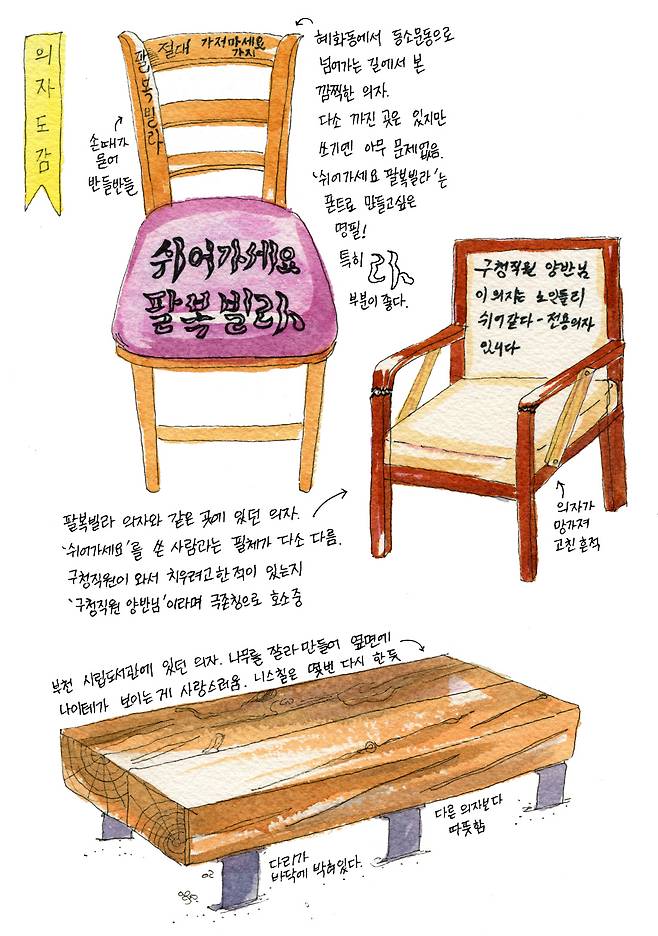 의자도감
팔복빌라
절대 가져마세요
가지
손때가
묻어
반들반들
쉬어가세요
팔복빌라
혜화동에서 동소문동으로
넘어가는 길에서 본
깜찍한 의자.
다소 까진 곳은 있지만
쓰기엔 아무 문제없음.
'쉬어가세요 팔복빌라'는
폰트로 만들고싶은
명필!
특히 라
부분이 좋다.
구청직원 양반님
이 의자는 노인들리
쉬어같다-전용의자
입니다
의자가
망가져
고친 흔적
팔복빌라 의자와 같은 곳에 있던 의자.
'쉬어가세요'를 쓴 사람과는 필체가 다소 다름.
구청직원이 와서 치우려고한적이 있는지
'구청직원 양반님'이라며 극존칭으로 호소중
부천 시립도서관에 있던 의자. 나무를 잘라 만들어 옆면에
나이테가 보이는게 사랑스러움. 니스칠은 몇번 다시 한듯
다른 의자보다
따뜻함
다리가
바닥에 박혀있다.